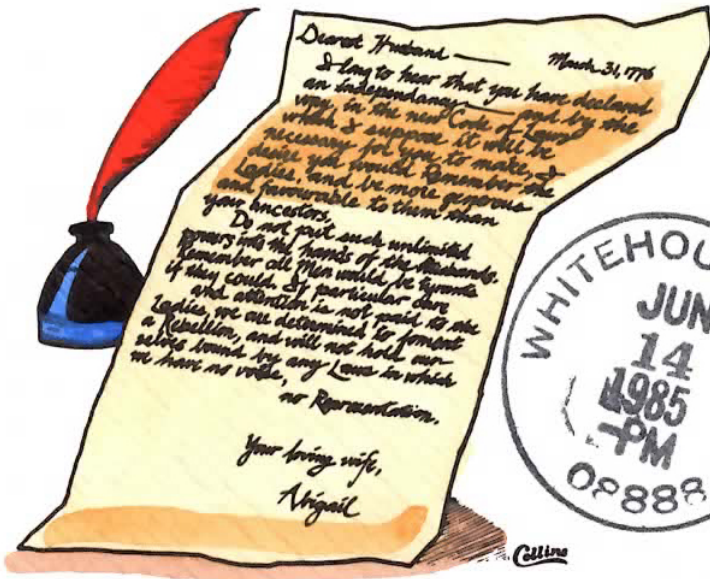 Dearest Husband — March 31, 1776
I long to hear that you have declared
an independancy — and by the
way in the new Code of Laws
which I suppose it will be
necessary for you to make, I
desire you would Remember the
Ladies, and be more generous
and favourable to them than
your ancestors.
Do not put such unlimited
powers into the hands of the Husbands.
Remember all Men would be tyrants
if they could. If particular care
and attention is not paid to the
Ladies, we are determined to foment
a Rebellion, and will not hold our-
selves bound by any Laws in which
we have no voice,
no Representation.
Your loving wife,
Abigail
Collins
WHITEHOU
JUN
14
1985
PM
08888